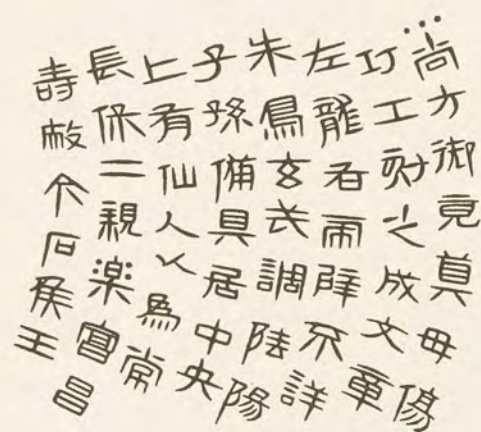 尚方御竟真毋傷
巧工刻之成文章
左龍右雨辟不詳
朱鳥玄武調陰陽
子孫備具居中央
上有仙人以為常
長保二親楽富昌
壽敝今石侯王